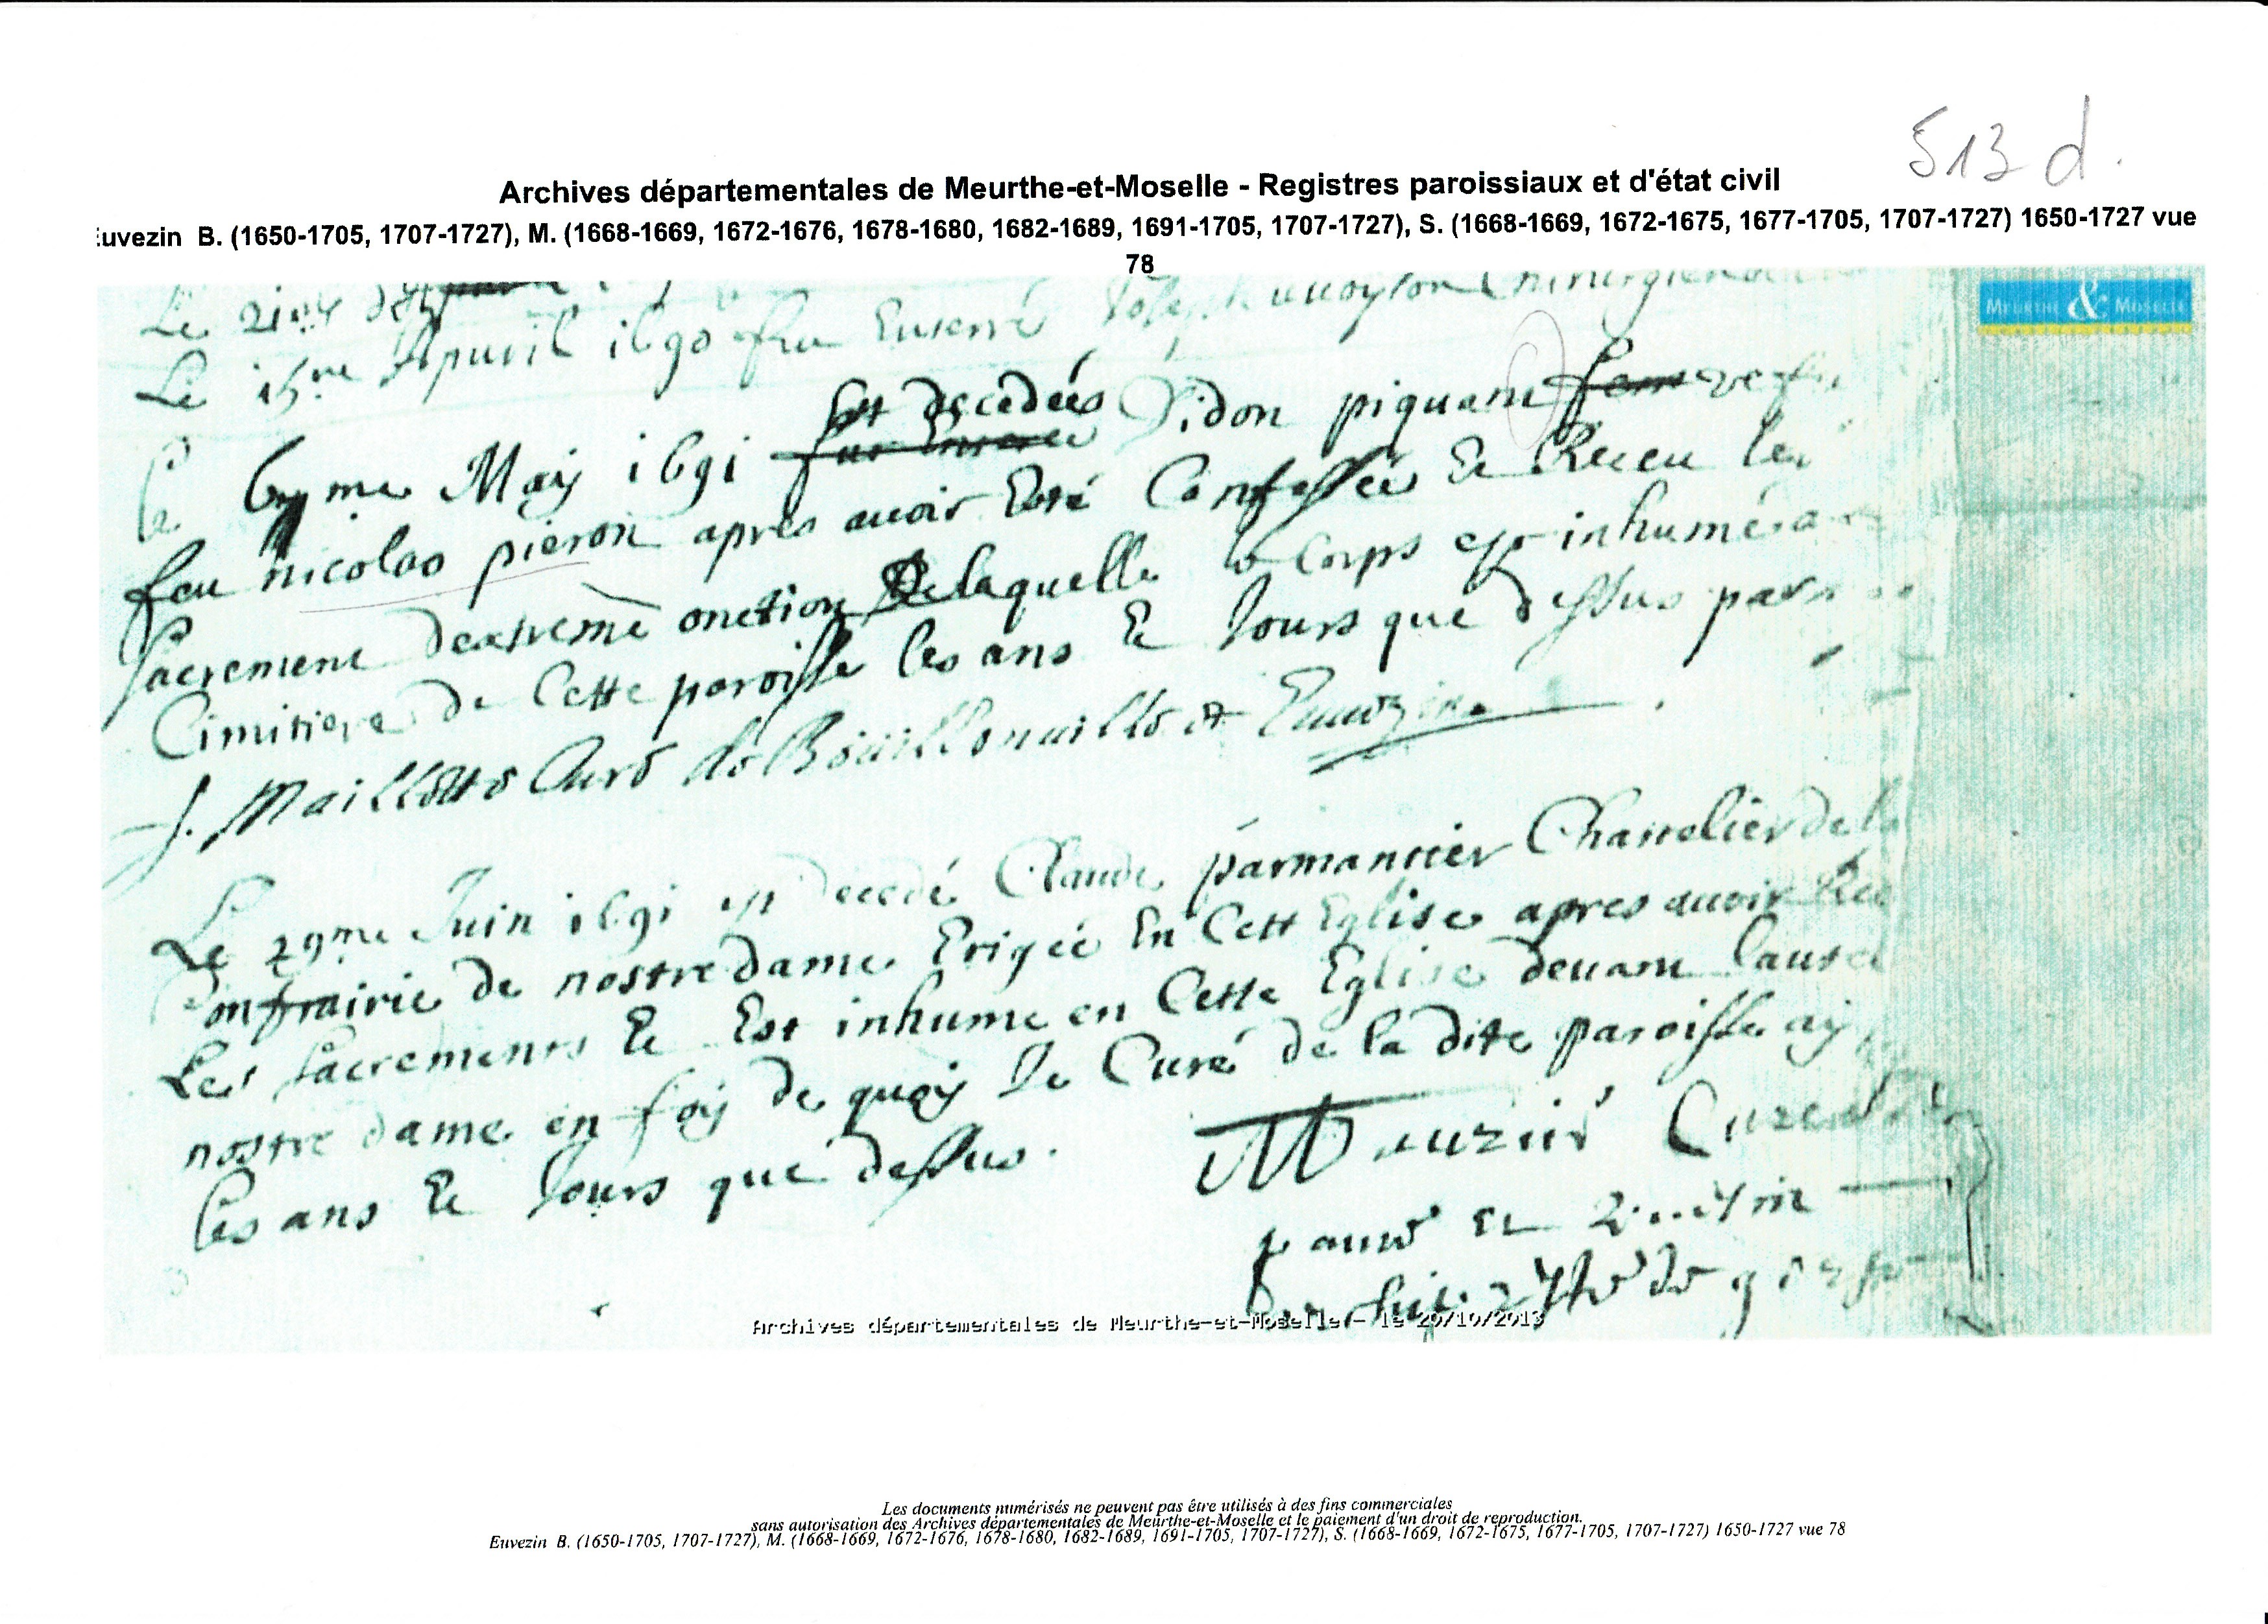 513 d.
Archives départementales de Meurthe-et-Moselle - Registres paroissiaux et d'état civil
uvezin B. (1650-1705, 1707-1727), M. (1668-1669, 1672-1676, 1678-1680, 1682-1689, 1691-1705, 1707-1727), S. (1668-1669, 1672-1675, 1677-1705, 1707-1727) 1650-1727 vue
78
MEURTHE & MOSELLE
Le
Le 15me Apuril 1690 fu Enterré Joseph Chirurgien
Est decedée
Le me May 1691 fut Enterrée Didon piquant
feu nicolas pieron apres auoir Esté Confessée Et Receu les
sacrement dextreme onction De laquelle le Corps est inhumé a
Cimitiere de Cette paroisse les ans Et Jours que dessus par
J. Maillotte Curé de Bouillonuille et Euuezin.
Le 29me Juin 1691 est decedé Claude parmantier Chastelier de la
Confrairie de nostre dame Erigée En Cett Eglise apres auoir
Les sacrements Et Est inhume en Cette Eglise deuant lautel
nostre dame en foy de quoy Je Curé de la dite paroisse ay
les ans Et Jours que dessus.
Archives départementales de Meurthe-et-Moselle - le 20/10/2013
Les documents numérisés ne peuvent pas être utilisés à des fins commerciales
sans autorisation des Archives départementales de Meurthe-et-Moselle et le paiement d'un droit de reproduction.
Euvezin B. (1650-1705, 1707-1727), M. (1668-1669, 1672-1676, 1678-1680, 1682-1689, 1691-1705, 1707-1727), S. (1668-1669, 1672-1675, 1677-1705, 1707-1727) 1650-1727 vue 78